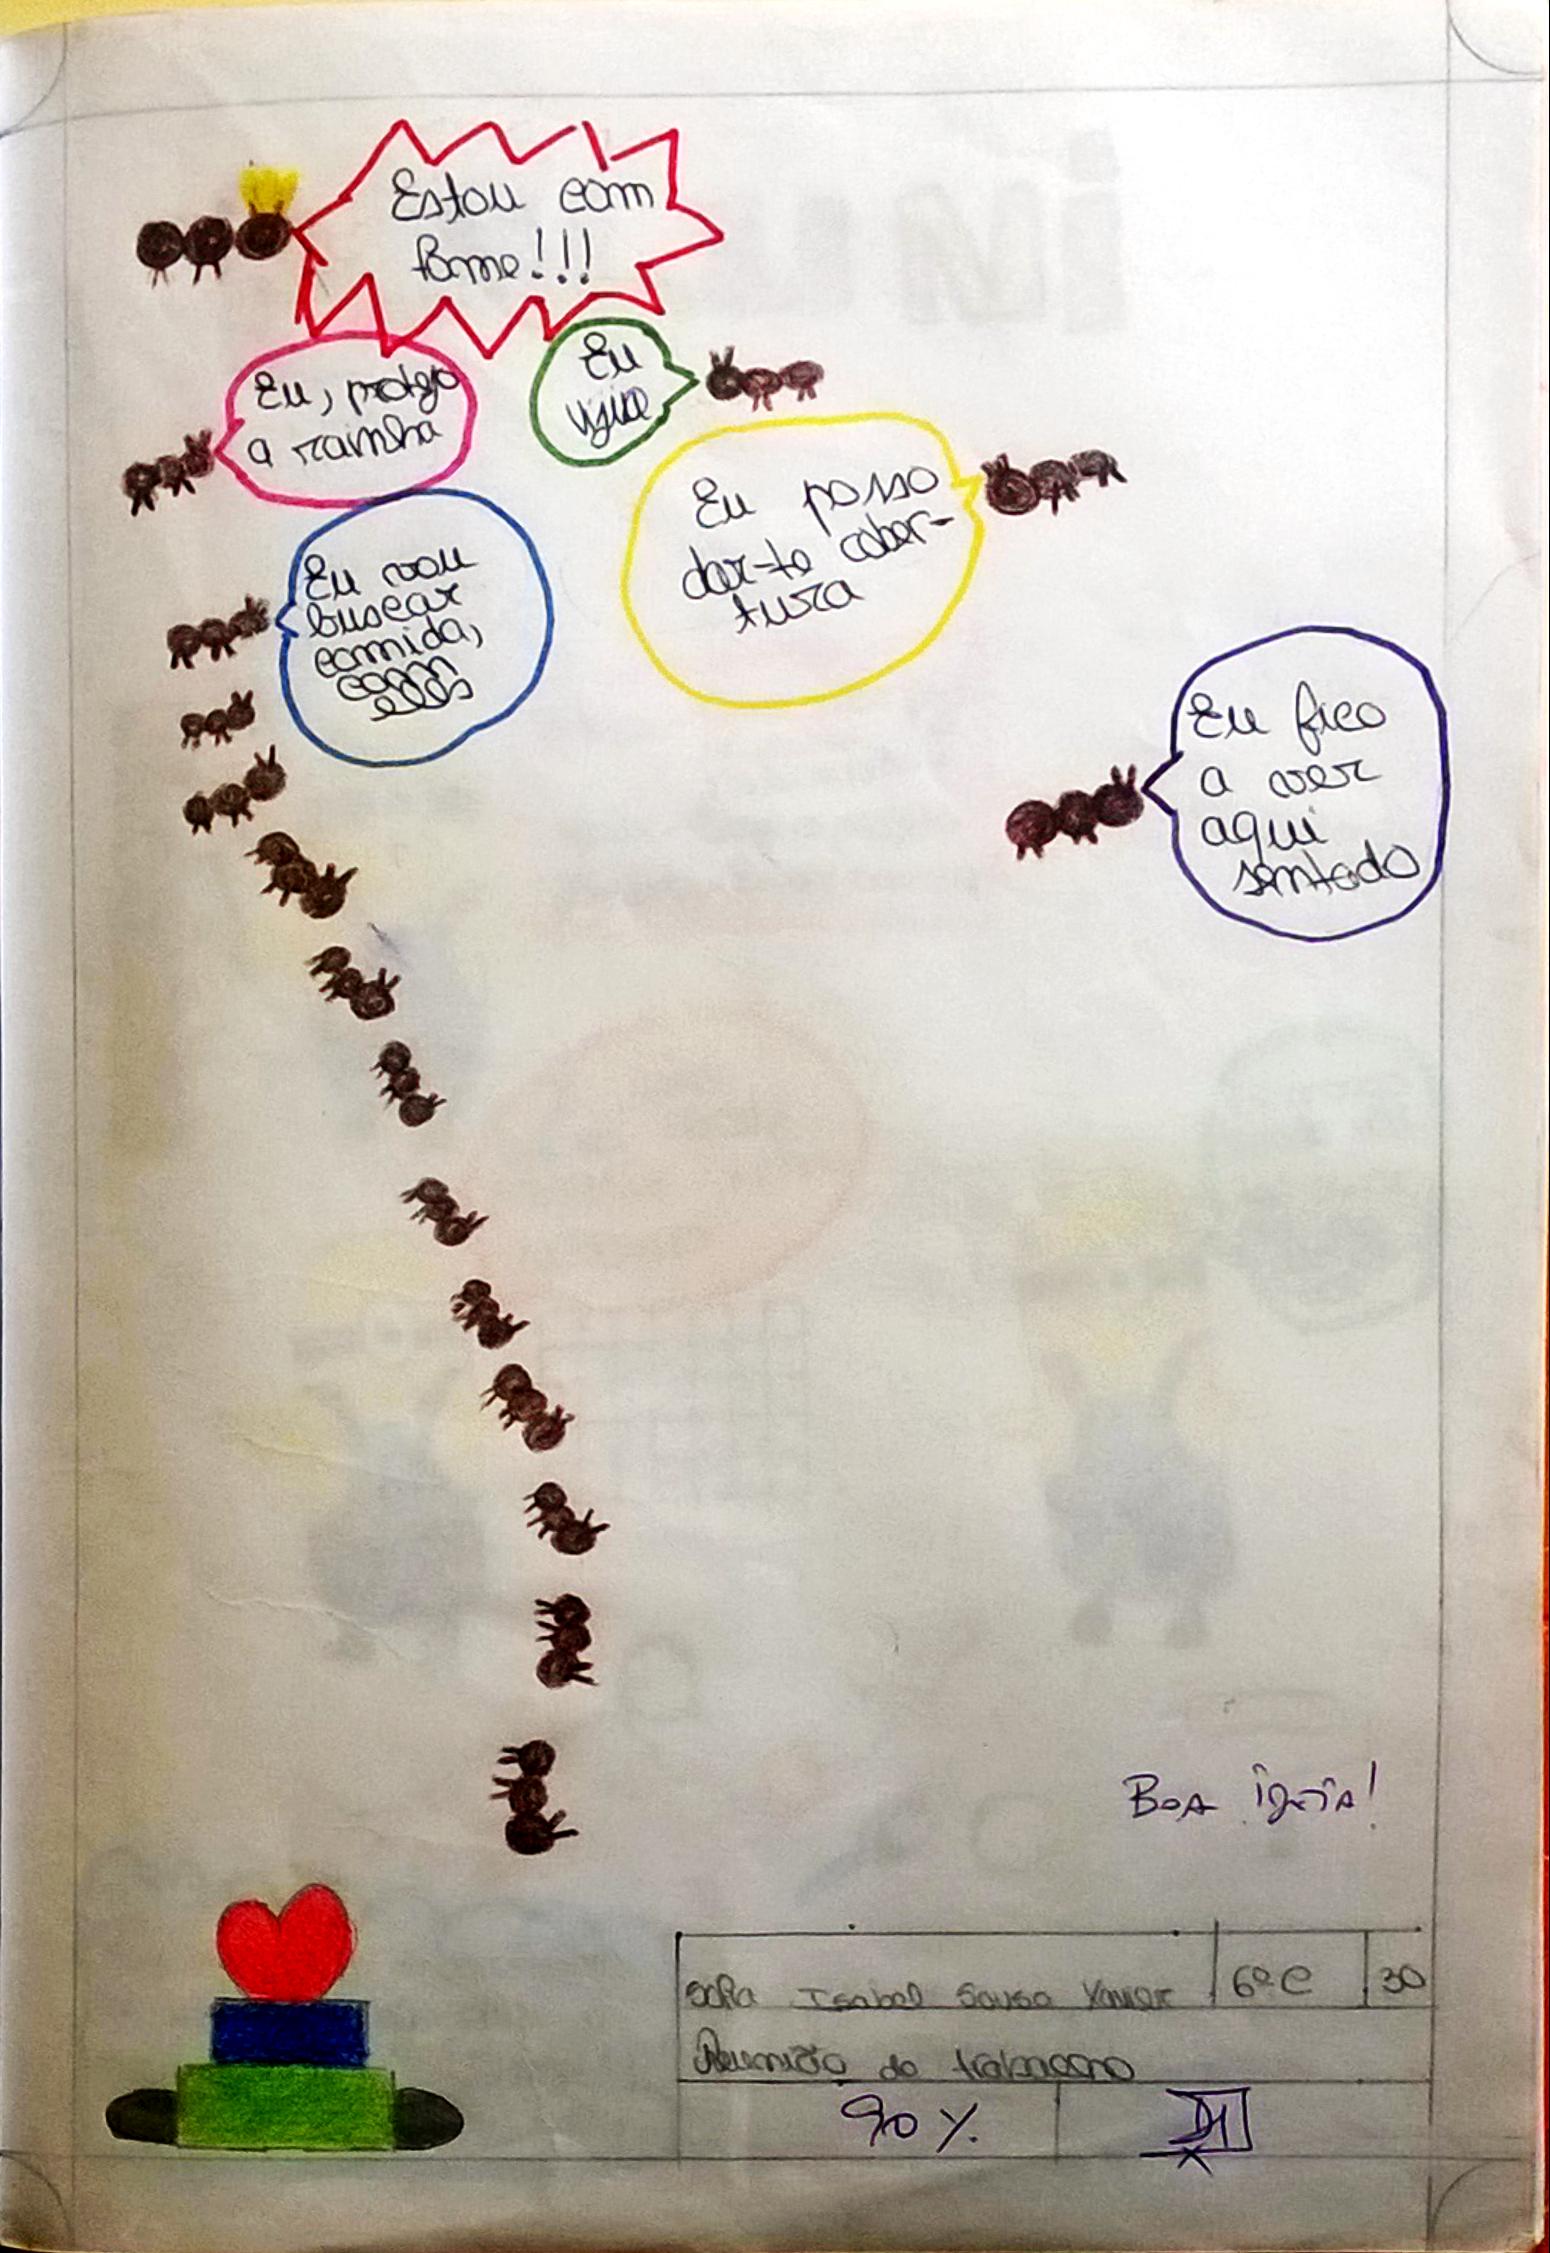 Estou com
fome!!!
Eu, protejo
a rainha
Eu
vigio
Eu posso
dar-te cober-
tura
Eu vou
buscar
comida,
com
eles
Eu fico
a ver
aqui
sentado
Boa ideia!
Sofia Isabel Sousa Xavier
6ºC
30
Reunião de
90%